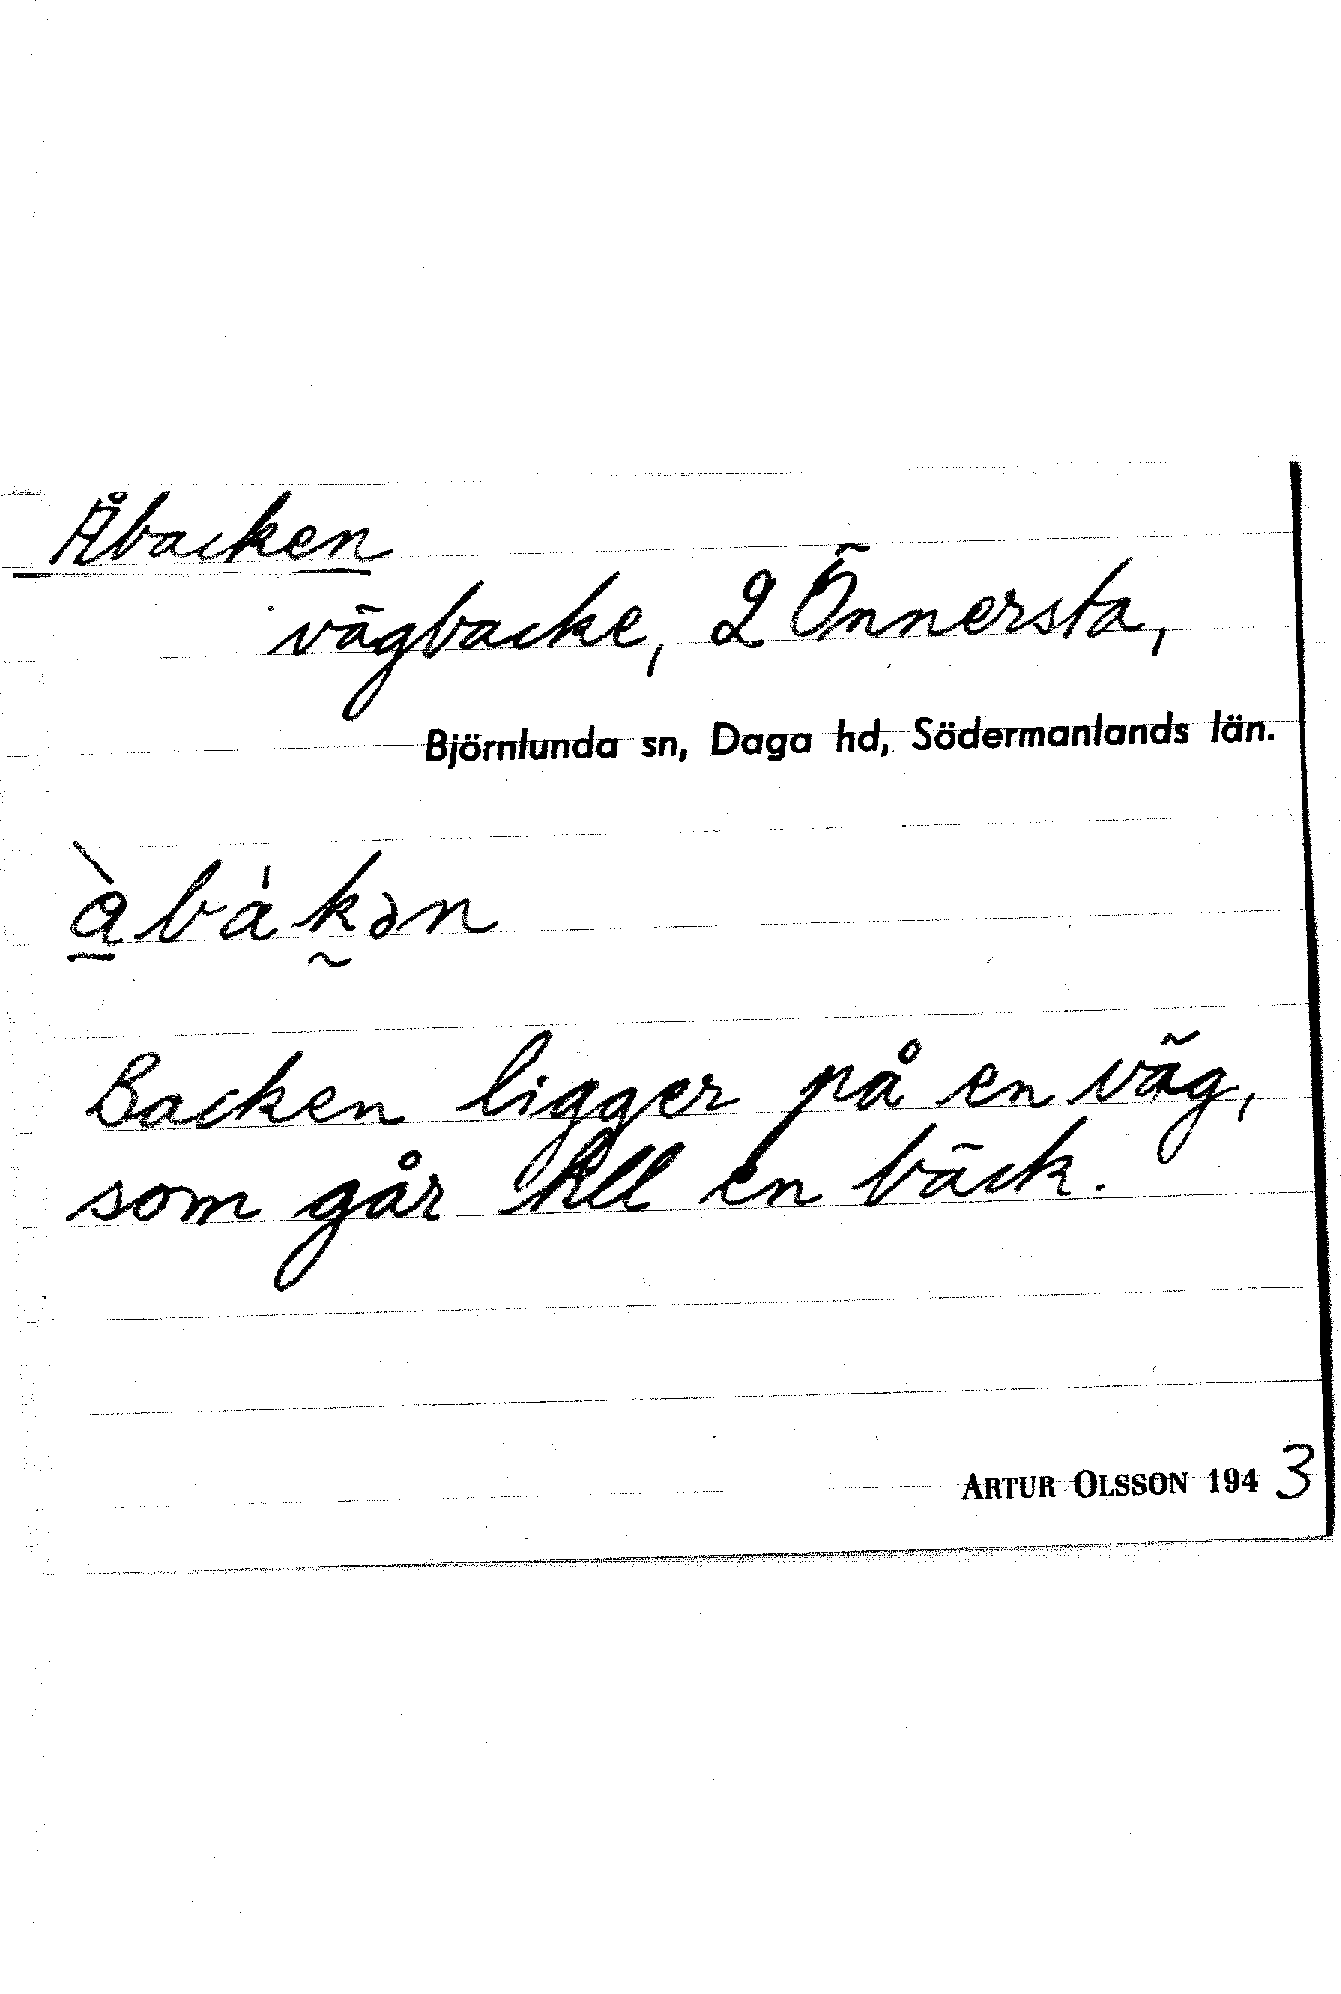 Åbacken
vägbacke, 2 Önnersta,
Björnlunda sn, Daga hd, Södermanlands län.
à̱bȧk̰ən
Backen ligger på en väg,
som går till en bäck.
ARTUR OLSSON 1943